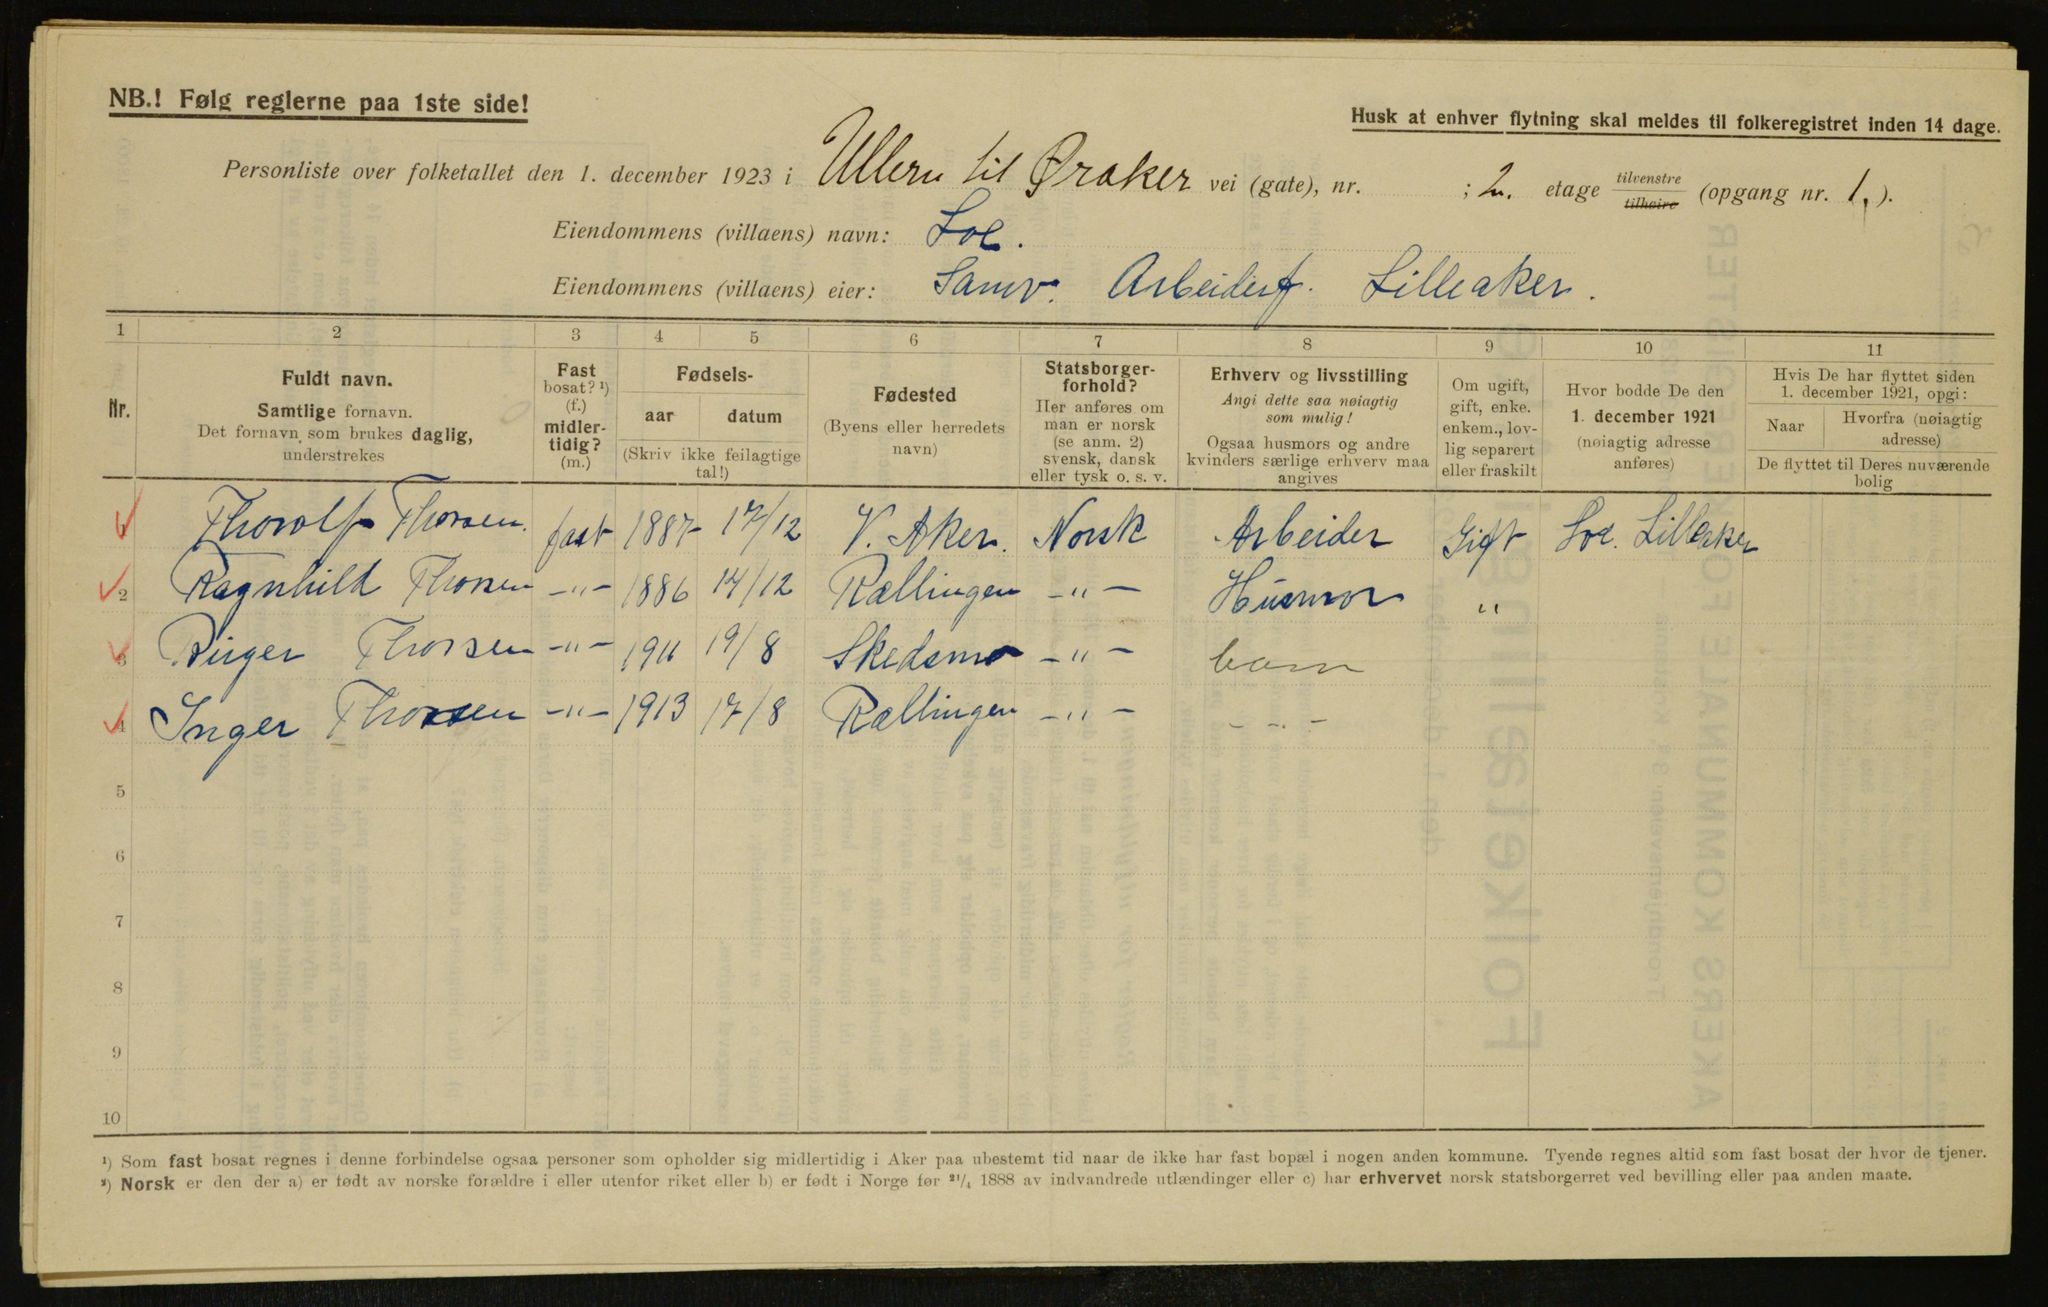 NB.! Følg reglerne paa 1ste side!
Husk at enhver flytning skal meldes til folkeregistret inden 14 dage.
Personliste over folketallet den 1. december 1923 i Ullern til Øraker vei (gate), nr. ; 2. etage tilvenstre tilhøire (opgang nr. 1.).
Eiendommens (villaens) navn: Loe.
Eiendommens (villaens) eier: Samv. Arbeiderf. Lilleaker.
1 2 3 4 5 6 7 8 9 10 11
Nr.
Fuldt navn.
Samtlige fornavn.
Det fornavn som brukes daglig,
understrekes
Fast
bosat? ¹)
(f.)
midler-
tidig?
(m.)
Fødsels-
aar datum
(Skriv ikke feilagtige
tal!)
Fødested
(Byens eller herredets
navn)
Statsborger-
forhold?
Her anføres om
man er norsk
(se anm. 2)
svensk, dansk
eller tysk o. s. v.
Erhverv og livsstilling
Angi dette saa nøiagtig
som mulig!
Ogsaa husmors og andre
kvinders særlige erhverv maa
angives
Om ugift,
gift, enke.
enkem., lov-
lig separert
eller fraskilt
Hvor bodde De den
1. december 1921
(nøiagtig adresse
anføres)
Hvis De har flyttet siden
1. december 1921, opgi:
Naar Hvorfra (nøiagtig
adresse)
De flyttet til Deres nuværende
bolig
1 Thorolf Thorsen. fast 1887 17/12 V. Aker. Norsk Arbeider Gift Loe. Lilleaker
2 Ragnhild Thorsen -"- 1886 14/12 Rællingen -"- Husmor "
3 Birger Thorsen -"- 1911 19/8 Skedsmo -"- barn
4 Inger Thorsen -"- 1913 17/8 Rællingen -"- - " -
5
6
7
8
9
10
¹) Som fast bosat regnes i denne forbindelse ogsaa personer som opholder sig midlertidig i Aker paa ubestemt tid naar de ikke har fast bopæl i nogen anden kommune. Tyende regnes altid som fast bosat der hvor de tjener.
²) Norsk er den der a) er født av norske forældre i eller utenfor riket eller b) er født i Norge før ²¹/₄ 1888 av indvandrede utlændinger eller c) har erhvervet norsk statsborgerret ved bevilling eller paa anden maate.